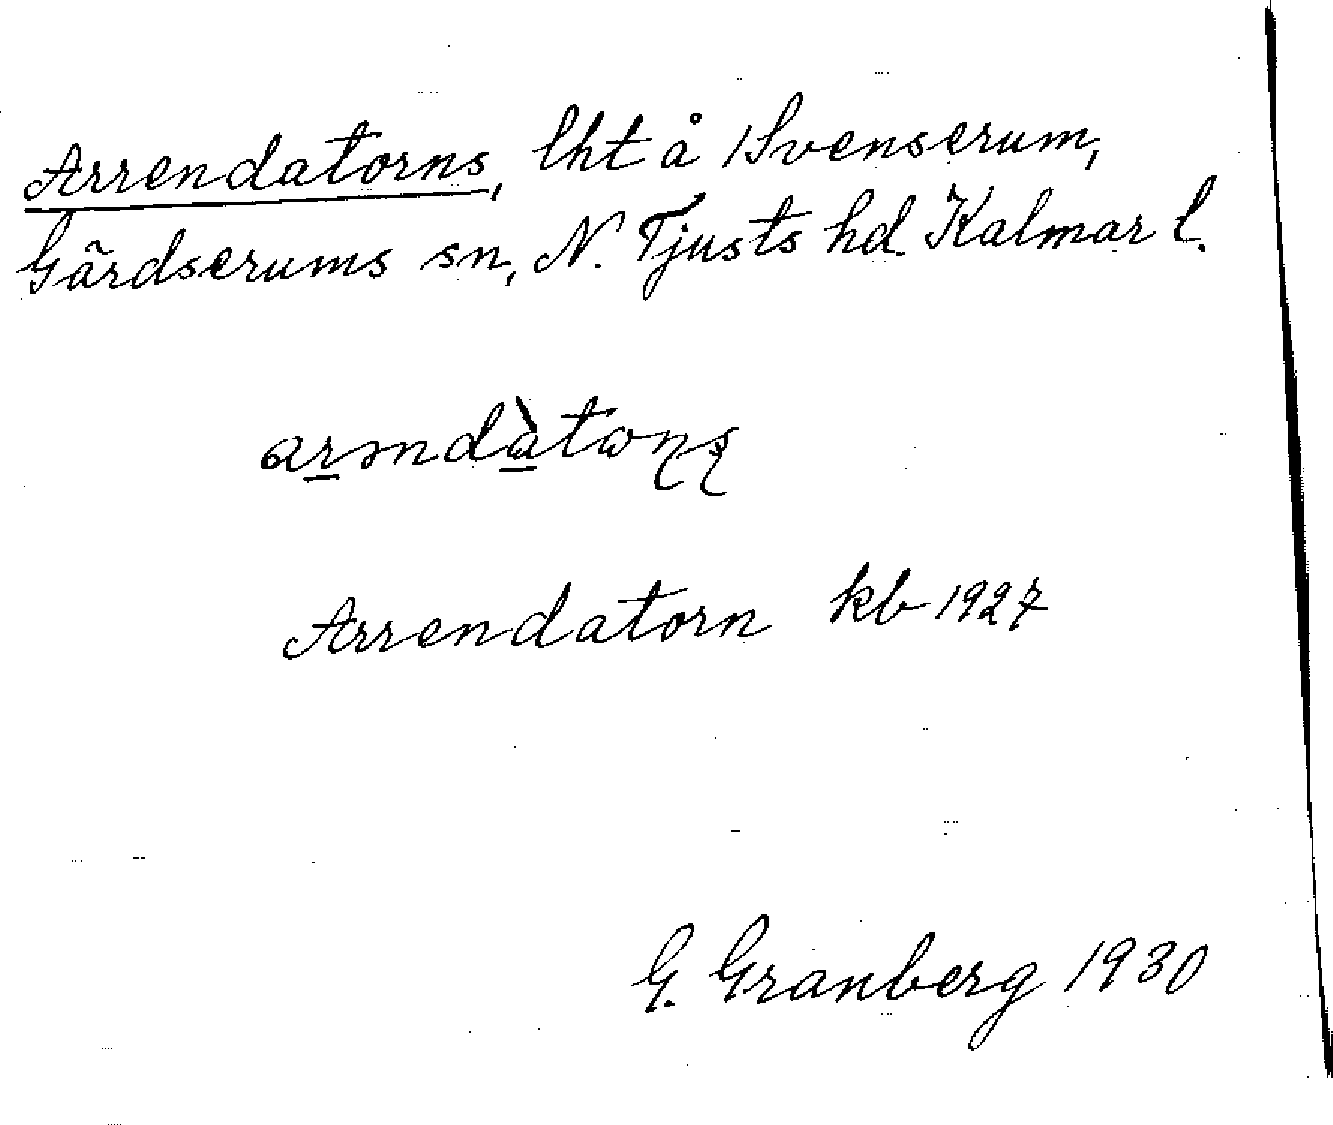 Arrendatorns, lht å /Svenserum,
Gärdserums sn, N. Tjusts hd. Kalmar l.
arəndàtɷɳʂ
Arrendatorn kb 1927
G. Granberg 1930